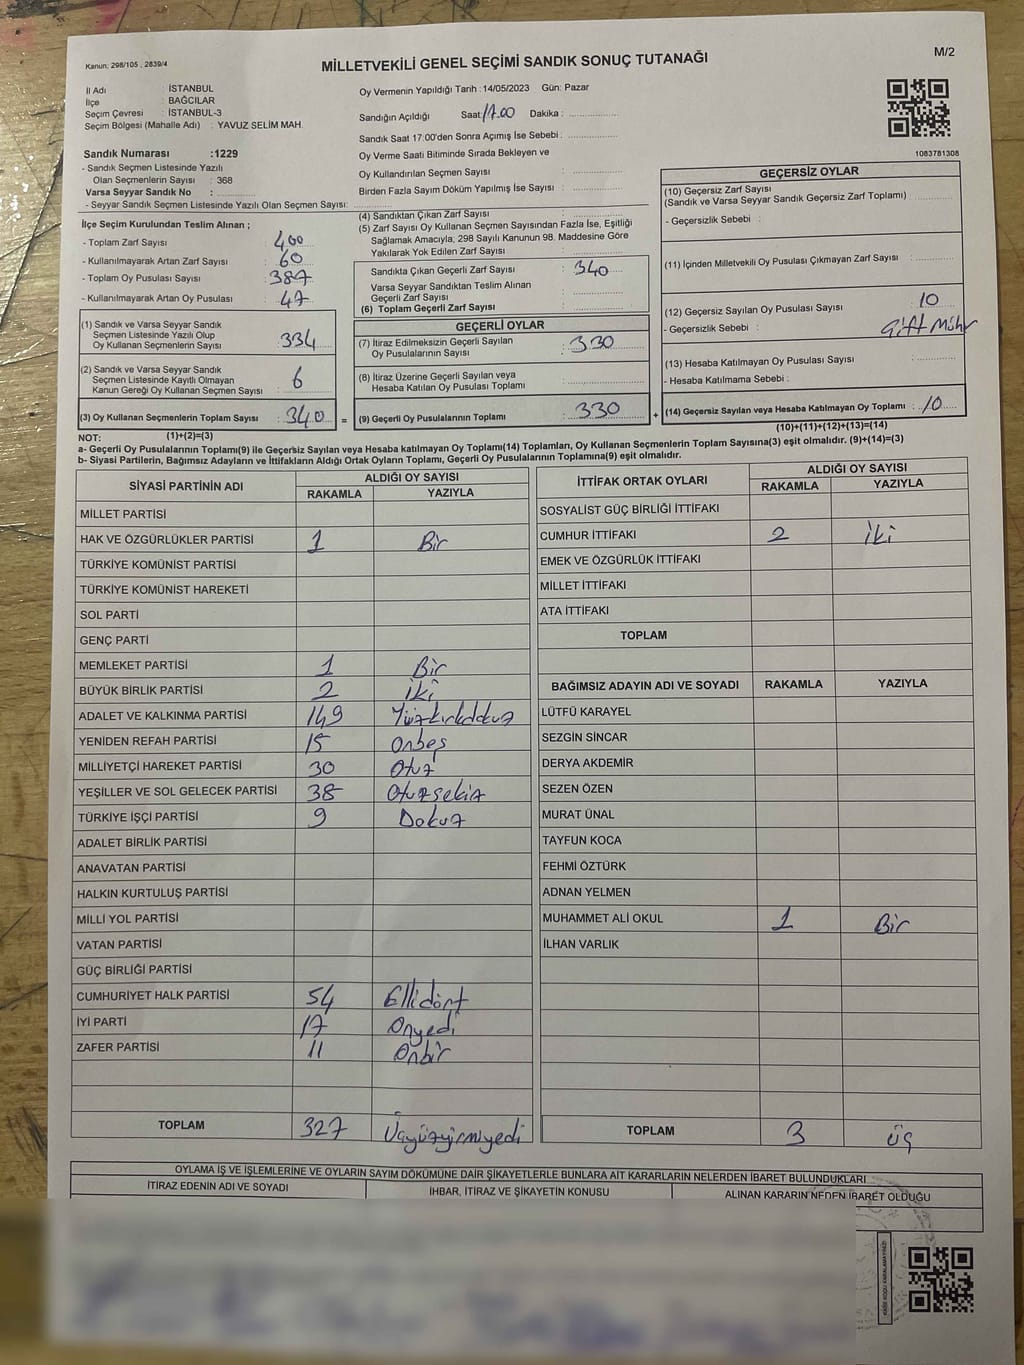 Kanun: 298/105 , 2839/4
MİLLETVEKİLİ GENEL SEÇİMİ SANDIK SONUÇ TUTANAĞI
M/2
İl Adı : İSTANBUL
İlçe : BAĞCILAR
Seçim Çevresi : İSTANBUL-3
Seçim Bölgesi (Mahalle Adı) : YAVUZ SELİM MAH.
Sandık Numarası :1229
- Sandık Seçmen Listesinde Yazılı
Olan Seçmenlerin Sayısı : 368
Varsa Seyyar Sandık No :
- Seyyar Sandık Seçmen Listesinde Yazılı Olan Seçmen Sayısı:
Oy Vermenin Yapıldığı Tarih :14/05/2023 Gün: Pazar
Sandığın Açıldığı Saat:17.00 Dakika :
Sandık Saat 17:00'den Sonra Açımış İse Sebebi :
Oy Verme Saati Bitiminde Sırada Bekleyen ve
Oy Kullandırılan Seçmen Sayısı :
Birden Fazla Sayım Döküm Yapılmış İse Sayısı :
1083781308
İlçe Seçim Kurulundan Teslim Alınan ;
- Toplam Zarf Sayısı : 400
- Kullanılmayarak Artan Zarf Sayısı : 60
- Toplam Oy Pusulası Sayısı : 387
- Kullanılmayarak Artan Oy Pusulası : 47
(1) Sandık ve Varsa Seyyar Sandık
Seçmen Listesinde Yazılı Olup
Oy Kullanan Seçmenlerin Sayısı : 334
(2) Sandık ve Varsa Seyyar Sandık
Seçmen Listesinde Kayıtlı Olmayan
Kanun Gereği Oy Kullanan Seçmen Sayısı : 6
(3) Oy Kullanan Seçmenlerin Toplam Sayısı : 340 =
(1)+(2)=(3)
(4) Sandıktan Çıkan Zarf Sayısı :
(5) Zarf Sayısı Oy Kullanan Seçmen Sayısından Fazla İse, Eşitliği
Sağlamak Amacıyla, 298 Sayılı Kanunun 98. Maddesine Göre
Yakılarak Yok Edilen Zarf Sayısı :
Sandıkta Çıkan Geçerli Zarf Sayısı : 340
Varsa Seyyar Sandıktan Teslim Alınan
Geçerli Zarf Sayısı :
(6) Toplam Geçerli Zarf Sayısı :
GEÇERLİ OYLAR
(7) İtiraz Edilmeksizin Geçerli Sayılan
Oy Pusulalarının Sayısı : 330
(8) İtiraz Üzerine Geçerli Sayılan veya
Hesaba Katılan Oy Pusulası Toplamı :
(9) Geçerli Oy Pusulalarının Toplamı : 330 +
GEÇERSİZ OYLAR
(10) Geçersiz Zarf Sayısı :
(Sandık ve Varsa Seyyar Sandık Geçersiz Zarf Toplamı)
- Geçersizlik Sebebi :
(11) İçinden Milletvekili Oy Pusulası Çıkmayan Zarf Sayısı :
(12) Geçersiz Sayılan Oy Pusulası Sayısı : 10
- Geçersizlik Sebebi : Çift Mühr
(13) Hesaba Katılmayan Oy Pusulası Sayısı :
- Hesaba Katılmama Sebebi :
(14) Geçersiz Sayılan veya Hesaba Katılmayan Oy Toplamı : 10
(10)+(11)+(12)+(13)=(14)
NOT:
a- Geçerli Oy Pusulalarının Toplamı(9) ile Geçersiz Sayılan veya Hesaba Katılmayan Oy Toplamı(14) Toplamları, Oy Kullanan Seçmenlerin Toplam Sayısına(3) eşit olmalıdır. (9)+(14)=(3)
b- Siyasi Partilerin, Bağımsız Adayların ve İttifakların Aldığı Ortak Oyların Toplamı, Geçerli Oy Pusulalarının Toplamına(9) eşit olmalıdır.
SİYASİ PARTİNİN ADI ALDIĞI OY SAYISI
RAKAMLA YAZIYLA
MİLLET PARTİSİ
HAK VE ÖZGÜRLÜKLER PARTİSİ 1 Bir
TÜRKİYE KOMÜNİST PARTİSİ
TÜRKİYE KOMÜNİST HAREKETİ
SOL PARTİ
GENÇ PARTİ
MEMLEKET PARTİSİ 1 Bir
BÜYÜK BİRLİK PARTİSİ 2 İki
ADALET VE KALKINMA PARTİSİ 149 Yüzkırkdokuz
YENİDEN REFAH PARTİSİ 15 Onbeş
MİLLİYETÇİ HAREKET PARTİSİ 30 Otuz
YEŞİLLER VE SOL GELECEK PARTİSİ 38 Otuzsekiz
TÜRKİYE İŞÇİ PARTİSİ 9 Dokuz
ADALET BİRLİK PARTİSİ
ANAVATAN PARTİSİ
HALKIN KURTULUŞ PARTİSİ
MİLLİ YOL PARTİSİ
VATAN PARTİSİ
GÜÇ BİRLİĞİ PARTİSİ
CUMHURİYET HALK PARTİSİ 54 Ellidört
İYİ PARTİ 17 Onyedi
ZAFER PARTİSİ 11 Onbir
TOPLAM 327 Üçyüzyirmiyedi
İTTİFAK ORTAK OYLARI ALDIĞI OY SAYISI
RAKAMLA YAZIYLA
SOSYALİST GÜÇ BİRLİĞİ İTTİFAKI
CUMHUR İTTİFAKI 2 İki
EMEK VE ÖZGÜRLÜK İTTİFAKI
MİLLET İTTİFAKI
ATA İTTİFAKI
TOPLAM
BAĞIMSIZ ADAYIN ADI VE SOYADI RAKAMLA YAZIYLA
LÜTFÜ KARAYEL
SEZGİN SİNCAR
DERYA AKDEMİR
SEZEN ÖZEN
MURAT ÜNAL
TAYFUN KOCA
FEHMİ ÖZTÜRK
ADNAN YELMEN
MUHAMMET ALİ OKUL 1 Bir
İLHAN VARLIK
TOPLAM 3 üç
OYLAMA İŞ VE İŞLEMLERİNE VE OYLARIN SAYIM DÖKÜMÜNE DAİR ŞİKAYETLERLE BUNLARA AİT KARARLARIN NELERDEN İBARET BULUNDUKLARI
İTİRAZ EDENİN ADI VE SOYADI İHBAR, İTİRAZ VE ŞİKAYETİN KONUSU ALINAN KARARIN NEDEN İBARET OLDUĞU